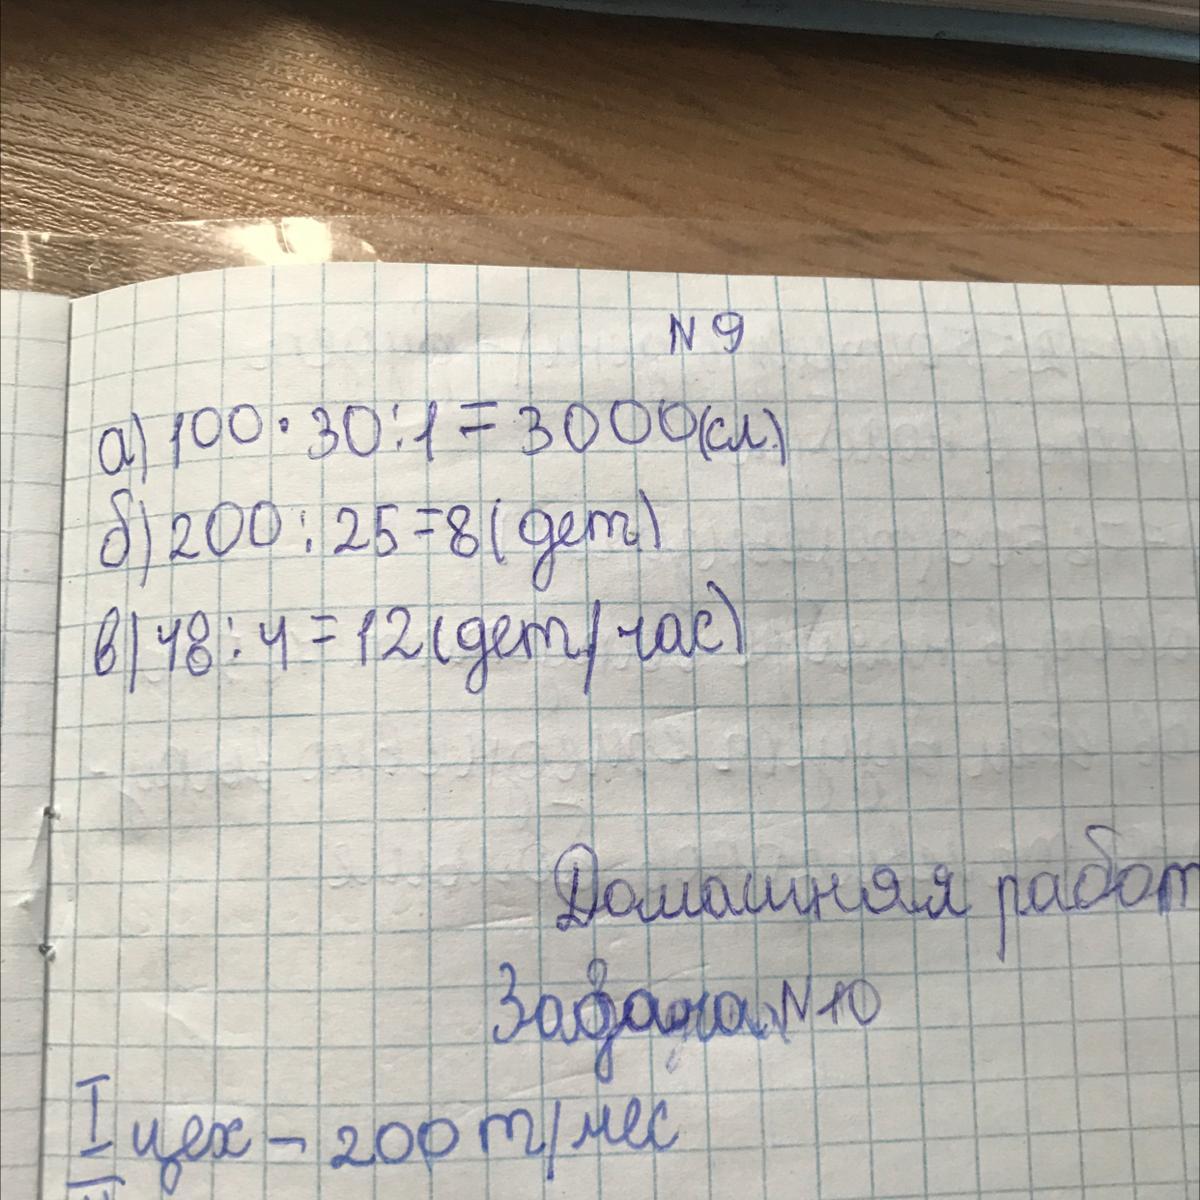 N 9
а) 100 • 30 : 1 = 3000 (сл.)
б) 200 : 25 = 8 (дет)
в) 48 : 4 = 12 (дет/час)
Домашняя работ
Задача N 10
I цех – 200 т/мес
II